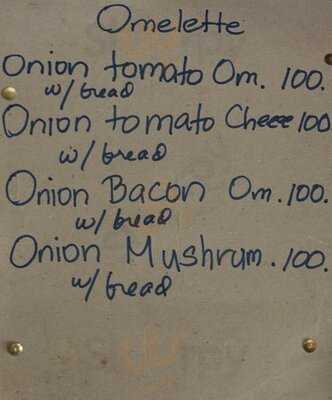 Omelette
Onion tomato Om. 100.
w/ bread
Onion tomato Cheee 100
w/ bread
Onion Bacon Om. 100.
w/ bread
Onion Mushrum. 100.
w/ bread